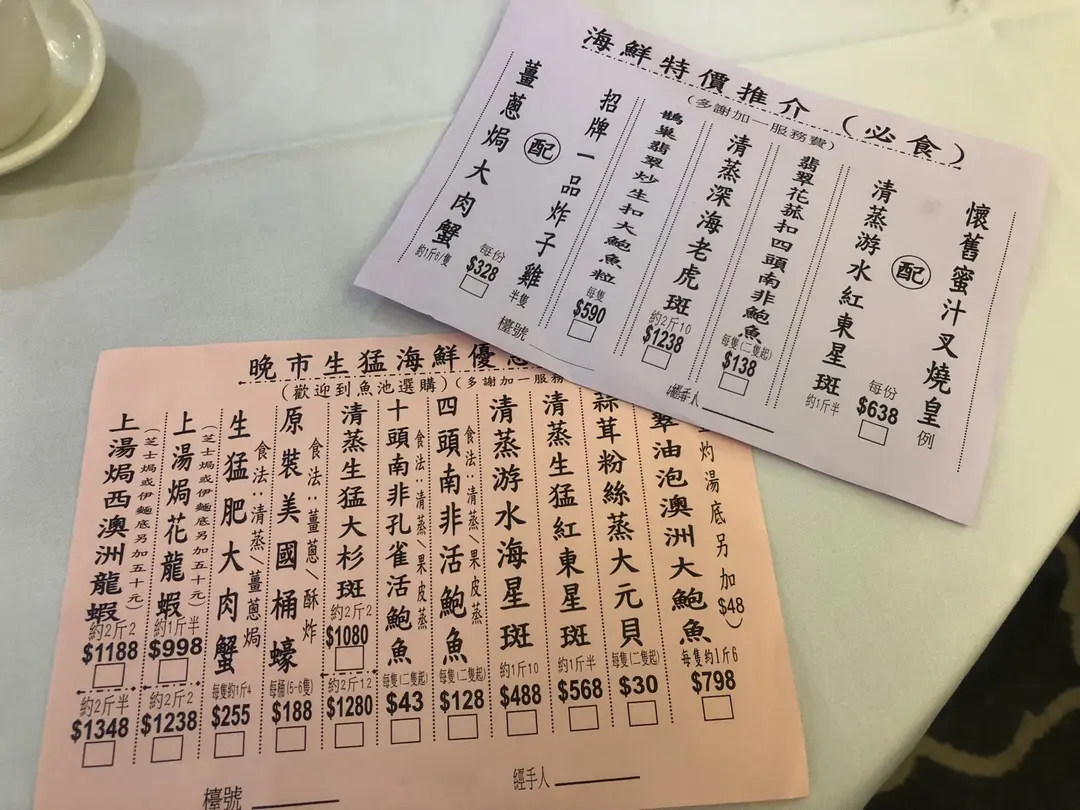 海鮮特價推介（必食）
（多謝加一服務費）
懷舊蜜汁叉燒皇 例
配
清蒸游水紅東星斑 約1斤半
每份
$638
翡翠花菰扣四頭南非鮑魚
每隻(二隻起)
$138
清蒸深海老虎斑
約2斤10
$1238
鵲巢翡翠炒生扣大鮑魚粒
每隻
$590
招牌一品炸子雞 半隻
配
薑蔥焗大肉蟹 約1斤6/隻
每份
$328
檯號
經手人
晚市生猛海鮮優
（歡迎到魚池選購）（多謝加一服務
灼湯底另加$48）
翠油泡澳洲大鮑魚
每隻約1斤6
$798
蒜茸粉絲蒸大元貝
每隻(二隻起)
$30
清蒸生猛紅東星斑
約1斤半
$568
清蒸游水海星斑
約1斤10
$488
四頭南非活鮑魚
食法：清蒸／果皮蒸
每隻(二隻起)
$128
十頭南非孔雀活鮑魚
食法：清蒸／果皮蒸
每隻(二隻起)
$43
清蒸生猛大杉斑
約2斤2
$1080
約2斤12
$1280
原裝美國桶蠔
食法：薑蔥／酥炸
每桶(5-6隻)
$188
生猛肥大肉蟹
食法：清蒸／薑蔥焗
每隻約1斤4
$255
上湯焗花龍蝦
（芝士焗或伊麵底另加五十元）
約1斤半
$998
約2斤2
$1238
上湯焗西澳洲龍蝦
（芝士焗或伊麵底另加五十元）
約2斤2
$1188
約2斤半
$1348
檯號
經手人